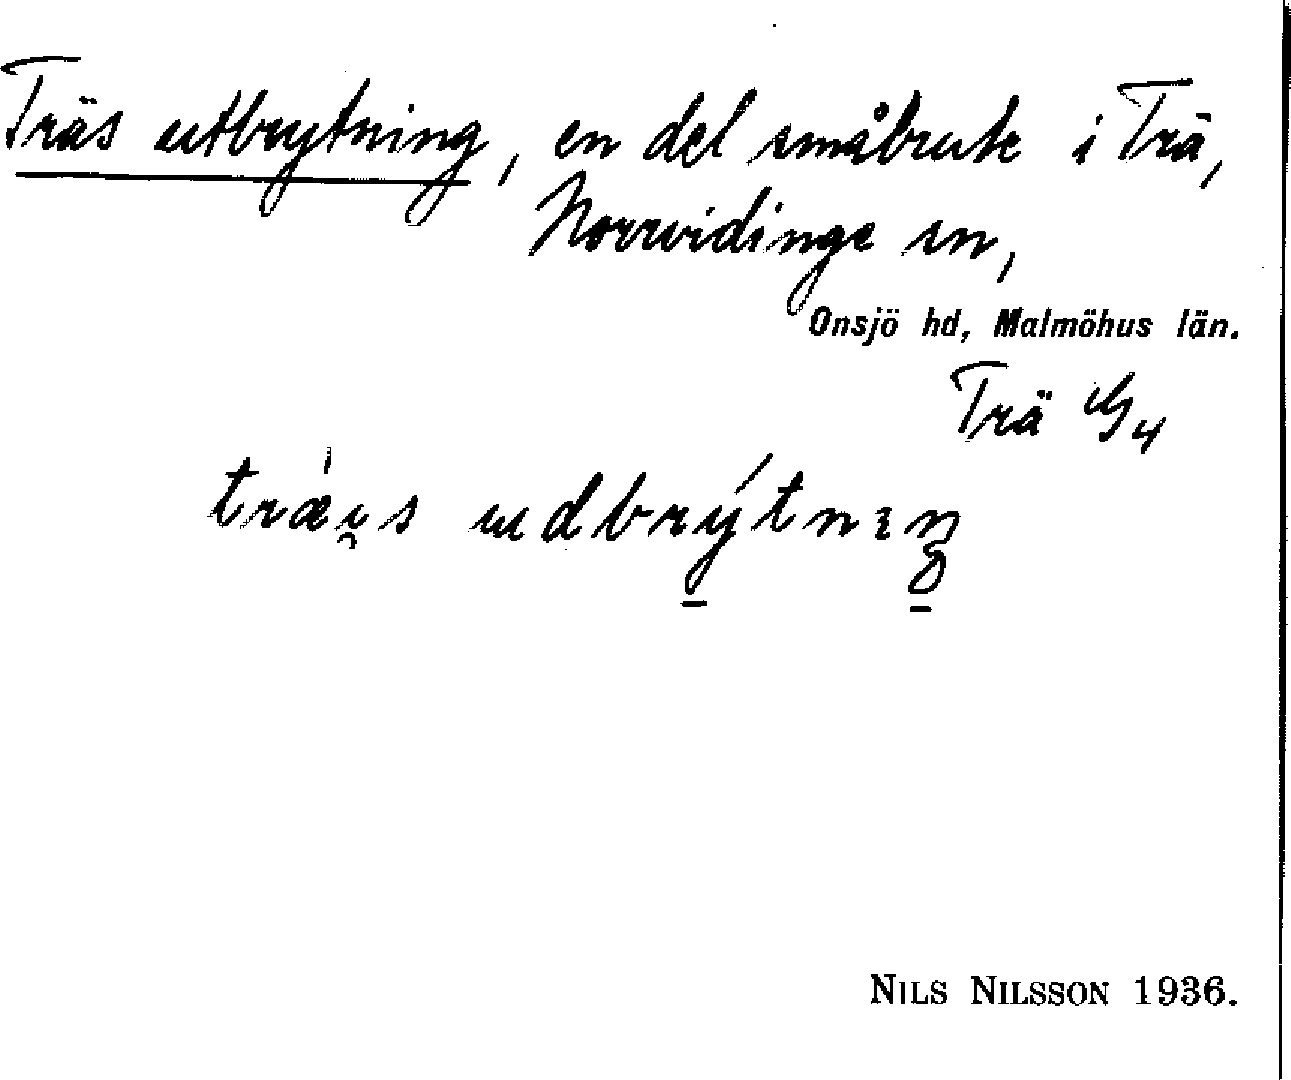 Träs utbrytning, en del småbruk i Trä,
Norrvidinge sn,
Onsjö hd, Malmöhus län.
Trä
træ̀i̯s udbrýtnıŋ
NILS NILSSON 1936.